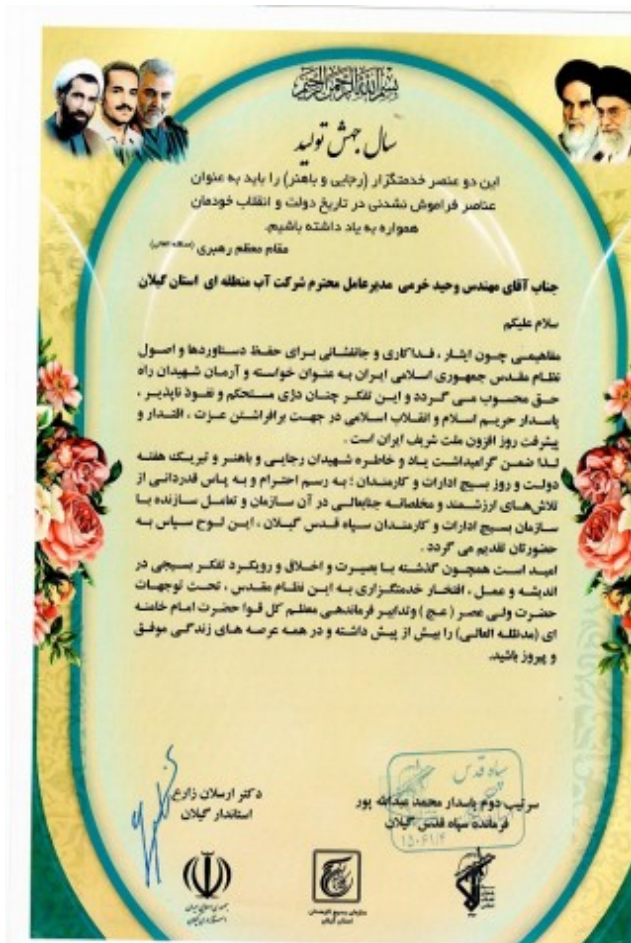 بسم الله الرحمن الرحیم
سال جهش تولید
این دو عنصر خدمتگزار (رجایی و باهنر) را باید به عنوان
عناصر فراموش نشدنی در تاریخ دولت و انقلاب خودمان
همواره به یاد داشته باشیم.
مقام معظم رهبری
جناب آقای مهندس وحید خرمی مدیرعامل محترم شرکت آب منطقه ای استان گیلان
سلام علیکم
مفاهیمی چون ایثار ، فداکاری و جانفشانی برای حفظ دستاوردها و اصول
نظام مقدس جمهوری اسلامی ایران به عنوان خواسته و آرمان شهیدان راه
حق محسوب می گردد و این تفکر چنان دژی مستحکم و نفوذ ناپذیر ،
پاسدار حریم اسلام و انقلاب اسلامی در جهت برافراشتن عزت ، اقتدار و
پیشرفت روز افزون ملت شریف ایران است .
لذا ضمن گرامیداشت یاد و خاطره شهیدان رجایی و باهنر و تبریک هفته
دولت و روز بسیج ادارات و کارمندان ؛ به رسم احترام و به پاس قدردانی از
تلاش‌های ارزشمند و مخلصانه جنابعالی در آن سازمان و تعامل سازنده با
سازمان بسیج ادارات و کارمندان سپاه قدس گیلان ، این لوح سپاس به
حضورتان تقدیم می گردد .
امید است همچون گذشته با بصیرت و اخلاق و رویکرد تفکر بسیجی در
اندیشه و عمل ، افتخار خدمتگزاری به این نظام مقدس ، تحت توجهات
حضرت ولی عصر ( عج ) وتدابیر فرماندهی معظم کل قوا حضرت امام خامنه
ای (مدظله العالی) را بیش از پیش داشته و در همه عرصه های زندگی موفق
و پیروز باشید.
سپاه قدس
سرتیپ دوم پاسدار محمد عبدالله پور
فرمانده سپاه قدس گیلان
دکتر ارسلان زارع
استاندار گیلان
سازمان بسیج کارمندان
استان گیلان
جمهوری اسلامی ایران
استانداری گیلان